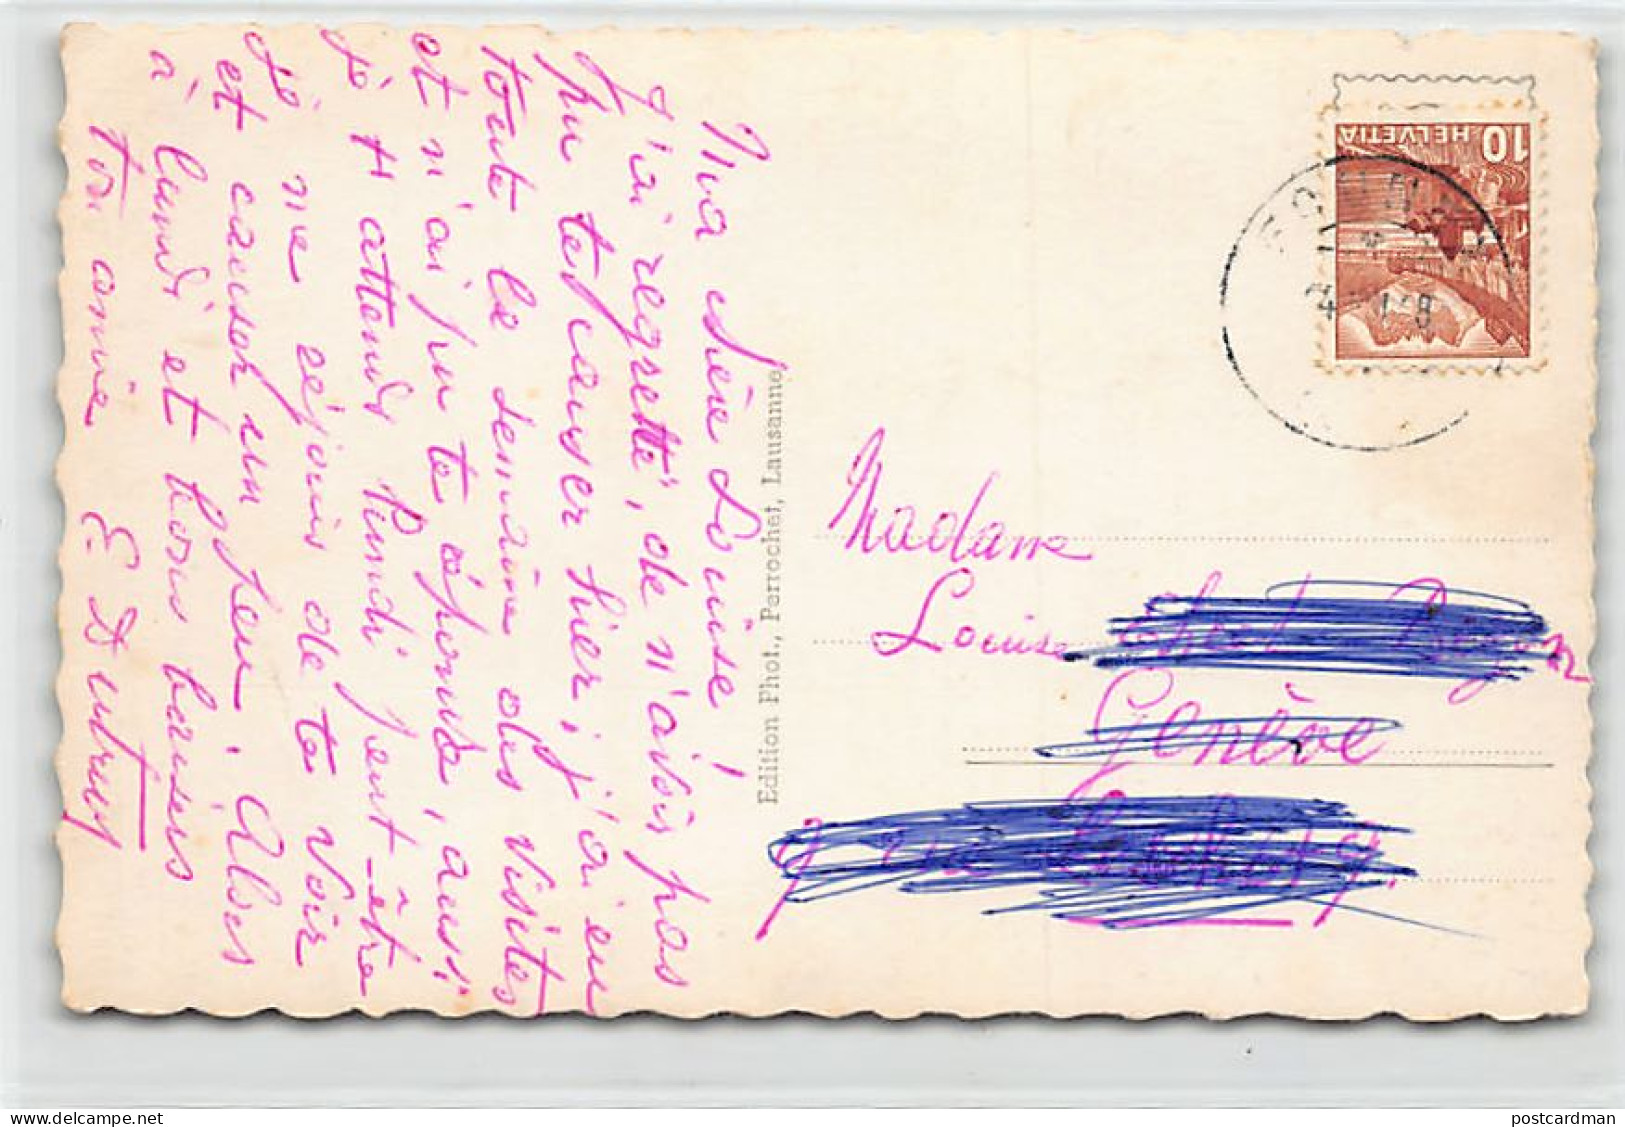 Ma chère Louise!
J'ai regretté, de n'avoir pas
pu te causer hier, j'ai eu
toute la semaine des visites
et n'ai pu te réponse, aussi
je t'attends lundi peut-être
je me réjouis de te voir
et causer un peu. Alors
à lundi et bons baisers
ton amie E. Dutruy
Edition Phot., Perrochet, Lausanne
10 HELVETIA
Madame
Louise
Genève
postcardman.com
postcardman